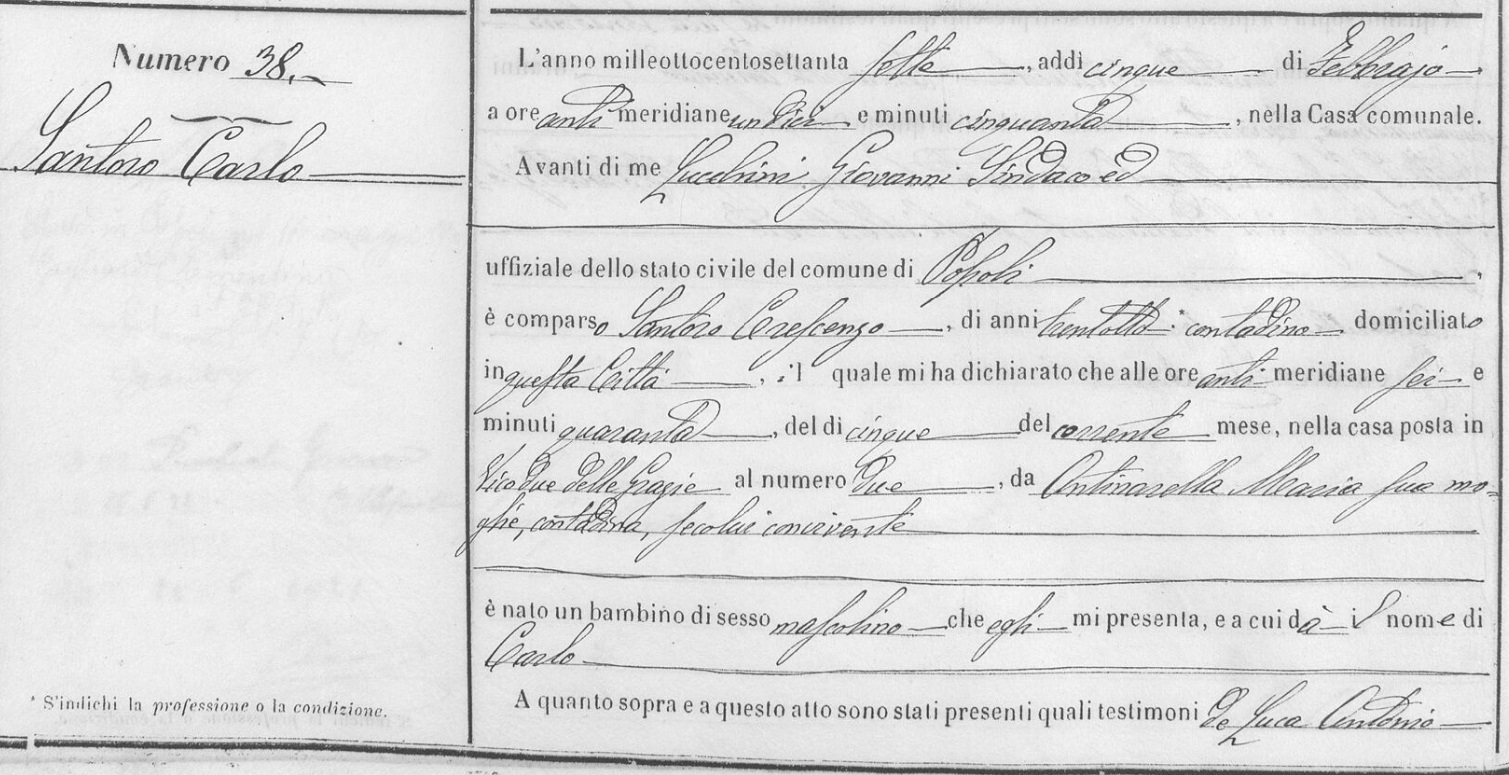 Numero 38.
Santoro Carlo
* S'indichi la professione o la condizione.
L'anno milleottocentosettanta sette, addì cinque di Febbrajo
a ore anti meridiane undici e minuti cinquanta, nella Casa comunale.
Avanti di me Lucchini Giovanni Sindaco ed
uffiziale dello stato civile del comune di Popoli,
è comparso Santoro Crescenzo, di anni trentotto * contadino domiciliato
in questa Città, il quale mi ha dichiarato che alle ore anti meridiane sei e
minuti quaranta, del dì cinque del corrente mese, nella casa posta in
Vico due delle Grazie al numero due, da Antinarella Maria sua mo=
glie, contadina, secolui convivente
è nato un bambino di sesso mascolino che egli mi presenta, e a cui dà il nome di
Carlo
A quanto sopra e a questo atto sono stati presenti quali testimoni de Luca Antonio